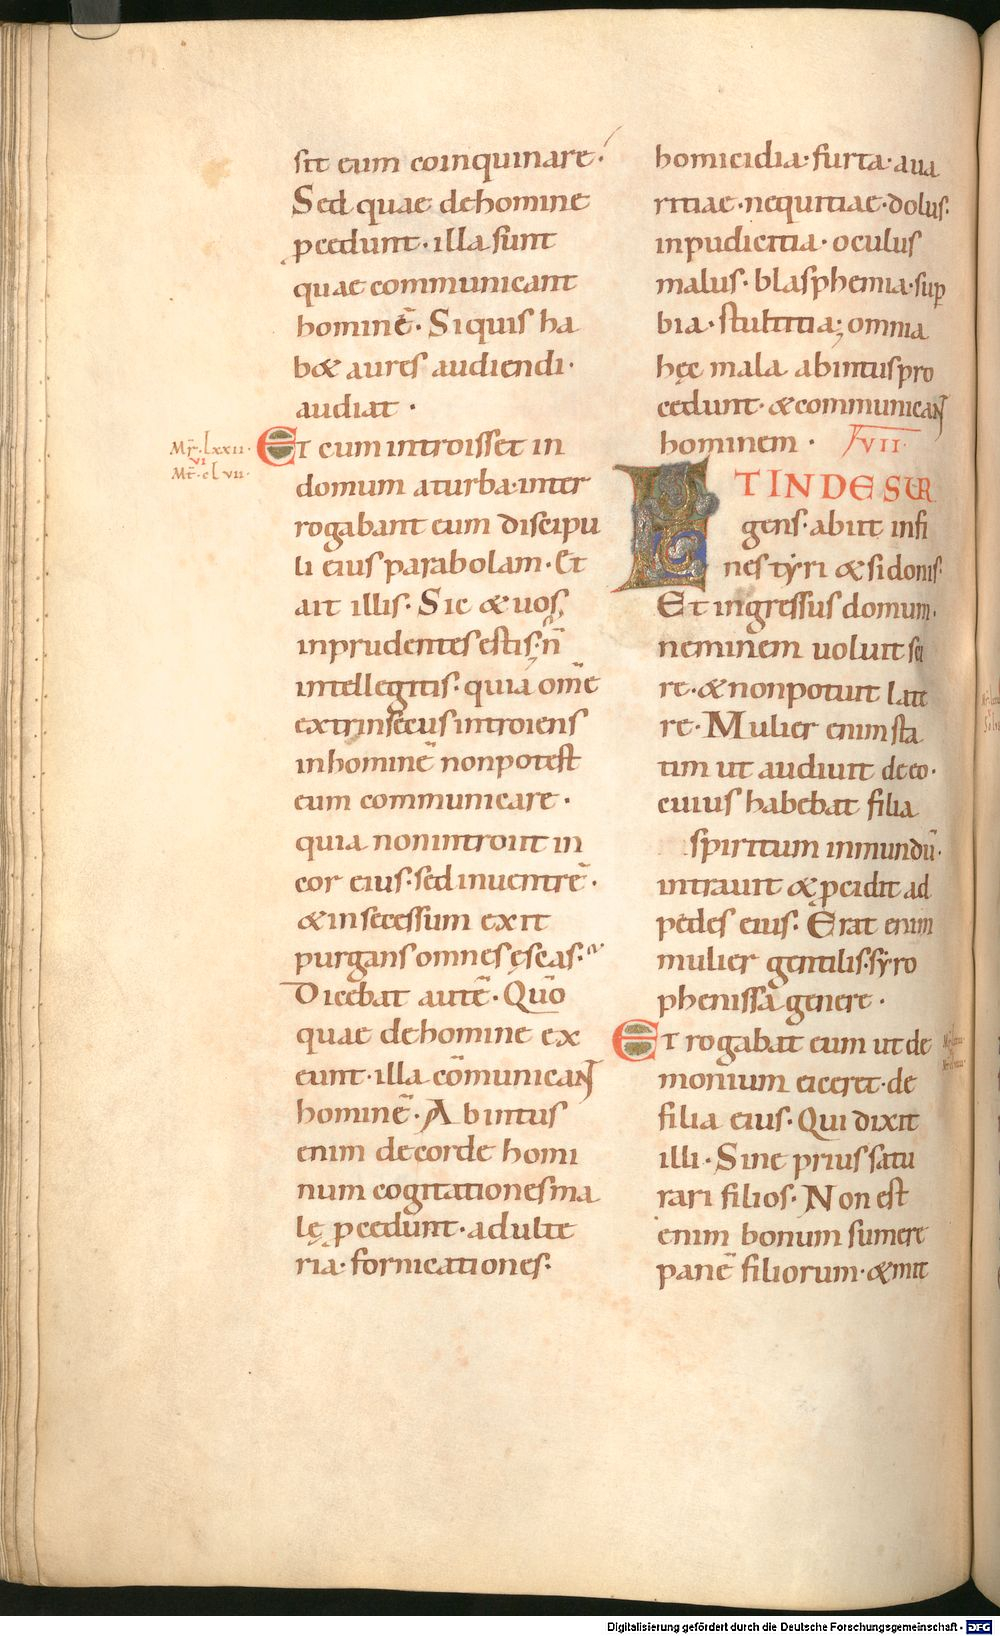 sit eum coinquinare.
Sed quae dehomine
ꝓcedunt· illa sunt
quae communicant
hominē· Siquis ha
b& aures audiendi·
audiat ·
Mr̄·lxxii·
vi
Mt̄·clvii·
Et cum introisset in
domum aturba·inter
rogabant eum discipu
li eius parabolam· Et
ait illis· Sic & uos
inprudentes estis; n̄
intellegitis· quia om̄e
extrinsecus introiens
inhominē nonpotest
eum communicare·
quia nonintroiit in
cor eius· sed inuentrē·
& insecessum exit
purgans omnes escas·
Dicebat autē· Qūo
quae dehomine ex
eunt· illa cōmunicant
hominē· Abintus
enim decorde homi
num cogitationes ma
lę ꝓcedunt· adulte
ria· fornicationes·
homicidia· furta· aua
ritiae· nequitiae· dolus·
inpudicitia· oculus
malus· blasphemia· suꝑ
bia· stultitia; omnia
hęc mala abintus pro
cedunt· & communicant
hominem · VII·
ET INDE SUR
gens· abiit infi
nes tyri & sidonis·
Et ingressus domum·
neminem uoluit sci
re· & nonpotuit late
re· Mulier enim sta
tim ut audiuit deeo·
cuius habebat filia
spiritum inmundū·
intrauit & ꝓcidit ad
pedes eius· Erat enim
mulier gentilis· syro
phenissa genere·
Et rogabat eum ut de
monium eiceret· de
filia eius· Qui dixit
illi· Sine prius satu
rari filios· Non est
enim bonum sumere
panē filiorum· & mit
Digitalisierung gefördert durch die Deutsche Forschungsgemeinschaft - DFG